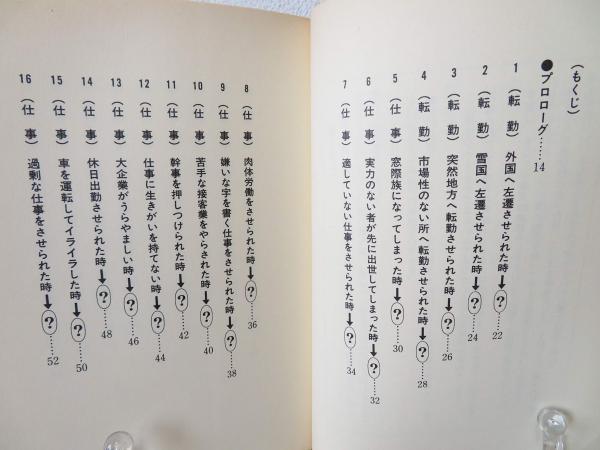 (もくじ)
●プロローグ……14
1 (転 勤) 外国へ左遷させられた時➡?……22
2 (転 勤) 雪国へ左遷させられた時➡?……24
3 (転 勤) 突然地方へ転勤させられた時➡?……26
4 (転 勤) 市場性のない所へ転勤させられた時➡?……28
5 (仕 事) 窓際族になってしまった時➡?……30
6 (仕 事) 実力のない者が先に出世してしまった時➡?……32
7 (仕 事) 適していない仕事をさせられた時➡?……34
8 (仕 事) 肉体労働をさせられた時➡?……36
9 (仕 事) 嫌いな字を書く仕事をさせられた時➡?……38
10 (仕 事) 苦手な接客業をやらされた時➡?……40
11 (仕 事) 幹事を押しつけられた時➡?……42
12 (仕 事) 仕事に生きがいを持てない時➡?……44
13 (仕 事) 大企業がうらやましい時➡?……46
14 (仕 事) 休日出勤させられた時➡?……48
15 (仕 事) 車を運転してイライラした時➡?……50
16 (仕 事) 過剰な仕事をさせられた時➡?……52